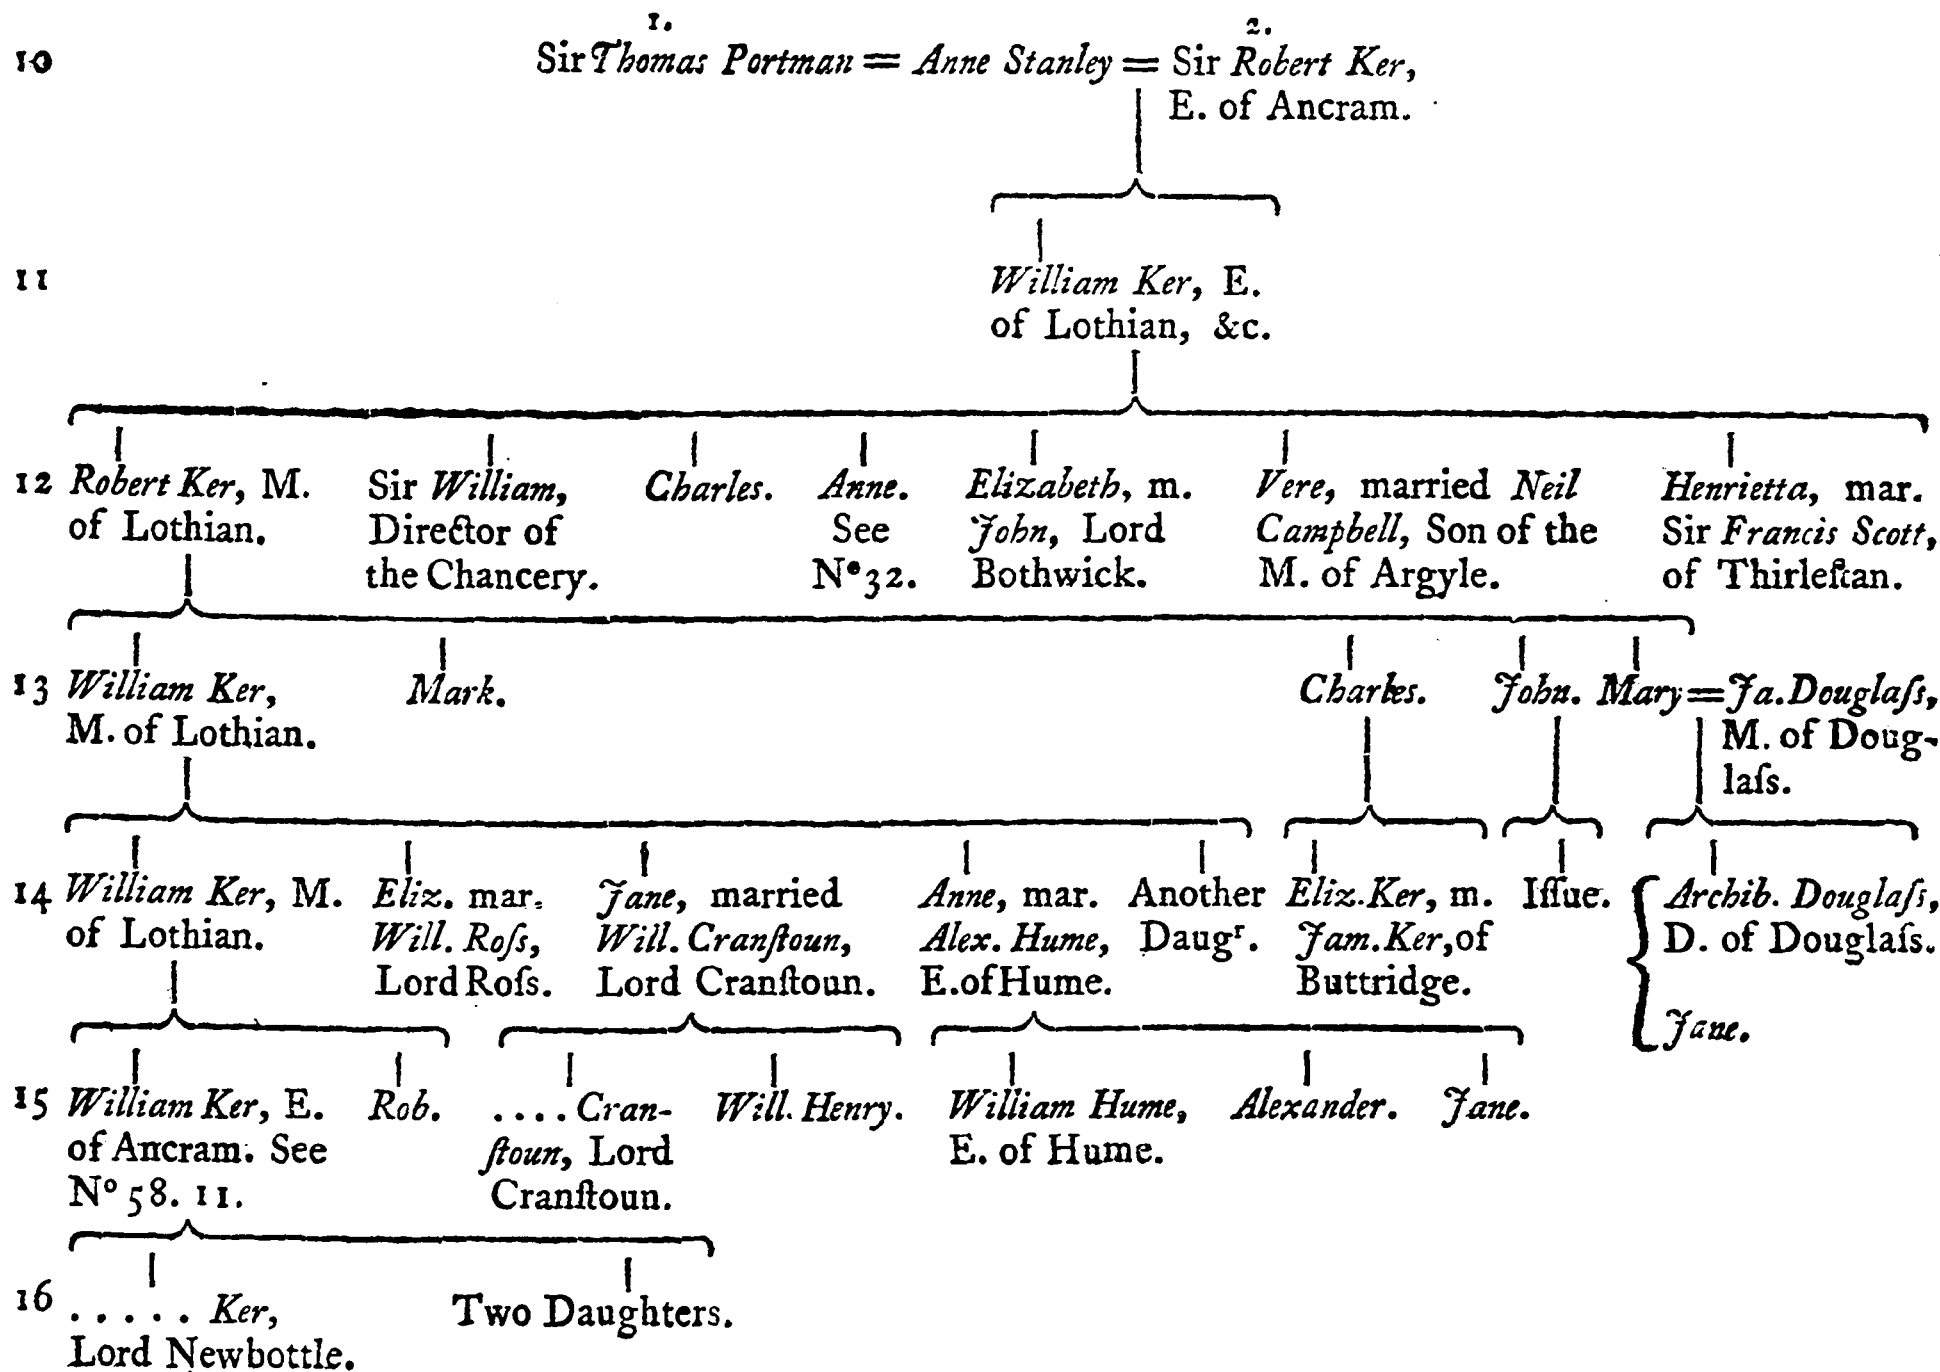 1.
2.
10 Sir Thomas Portman = Anne Stanley = Sir Robert Ker,
E. of Ancram.
11 William Ker, E.
of Lothian, &c.
12 Robert Ker, M.
of Lothian.
Sir William,
Director of
the Chancery.
Charles.
Anne.
See
No 32.
Elizabeth, m.
John, Lord
Bothwick.
Vere, married Neil
Campbell, Son of the
M. of Argyle.
Henrietta, mar.
Sir Francis Scott,
of Thirleſtan.
13 William Ker,
M. of Lothian.
Mark.
Charles.
John.
Mary = Ja. Douglaſs,
M. of Doug-
laſs.
14 William Ker, M.
of Lothian.
Eliz. mar.
Will. Roſs,
Lord Roſs.
Jane, married
Will. Cranſtoun,
Lord Cranſtoun.
Anne, mar.
Alex. Hume,
E. of Hume.
Another
Daugr.
Eliz. Ker, m.
Jam. Ker, of
Buttridge.
Iſſue.
Archib. Douglaſs,
D. of Douglaſs.
Jane.
15 William Ker, E.
of Ancram. See
No 58. 11.
Rob.
.... Cran-
ſtoun, Lord
Cranſtoun.
Will. Henry.
William Hume,
E. of Hume.
Alexander.
Jane.
16 ..... Ker,
Lord Newbottle.
Two Daughters.